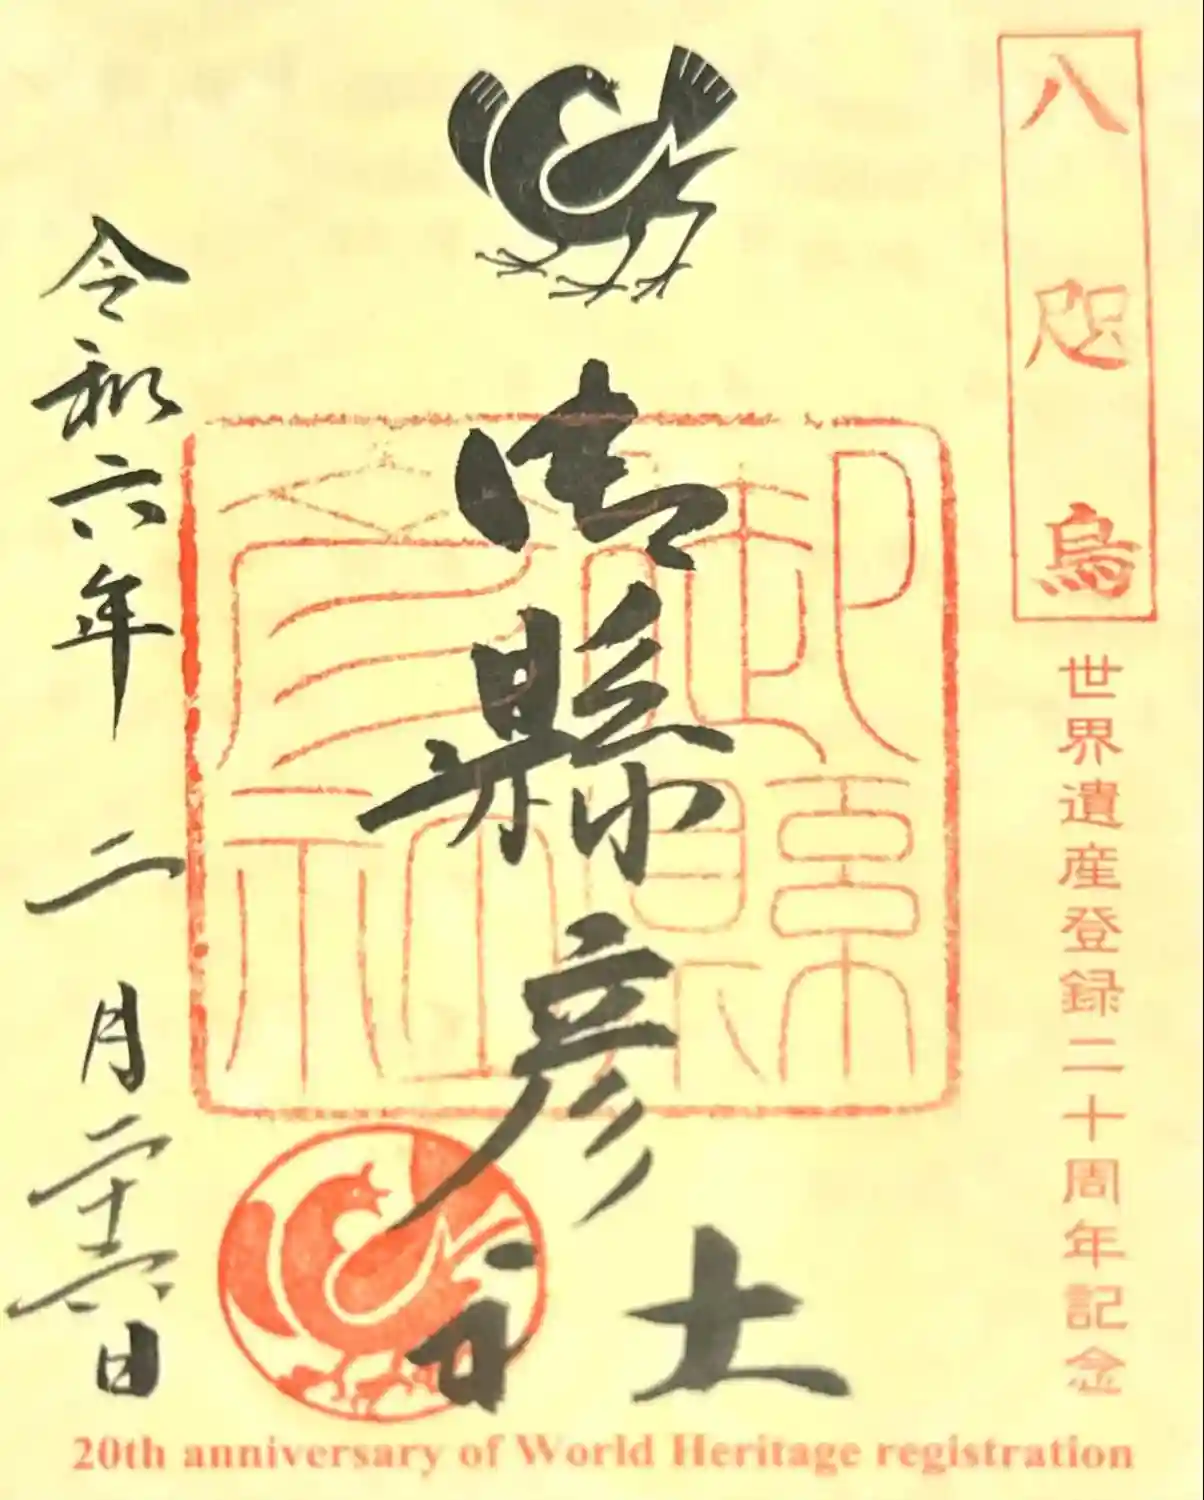 八咫烏
世界遺産登録二十周年記念
御縣彦社
御縣彦社
令和六年二月二十六日
20th anniversary of World Heritage registration